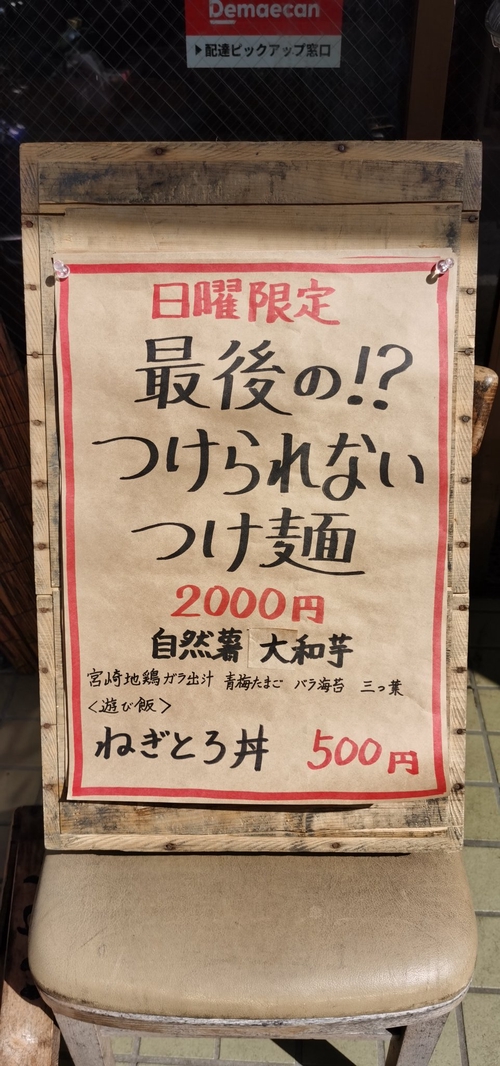 Demaecan
▶配達ピックアップ窓口
日曜限定
最後の!?
つけられない
つけ麺
2000円
自然薯 大和芋
宮崎地鶏ガラ出汁 青梅たまご バラ海苔 三つ葉
<遊び飯>
ねぎとろ丼 500円